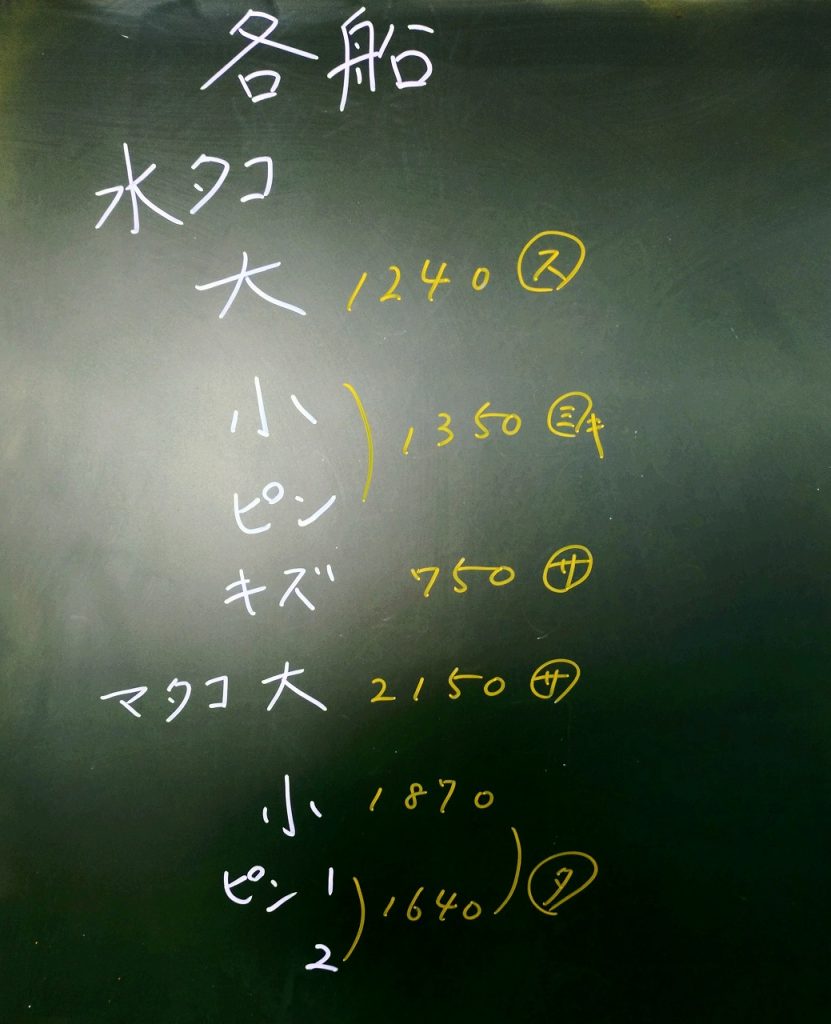 各船
水タコ
大 1240 ス
小
ピン
1350 ミキ
キズ 750 サ
マタコ 大 2150 サ
小 1870
ピン 1
1640 タ
2